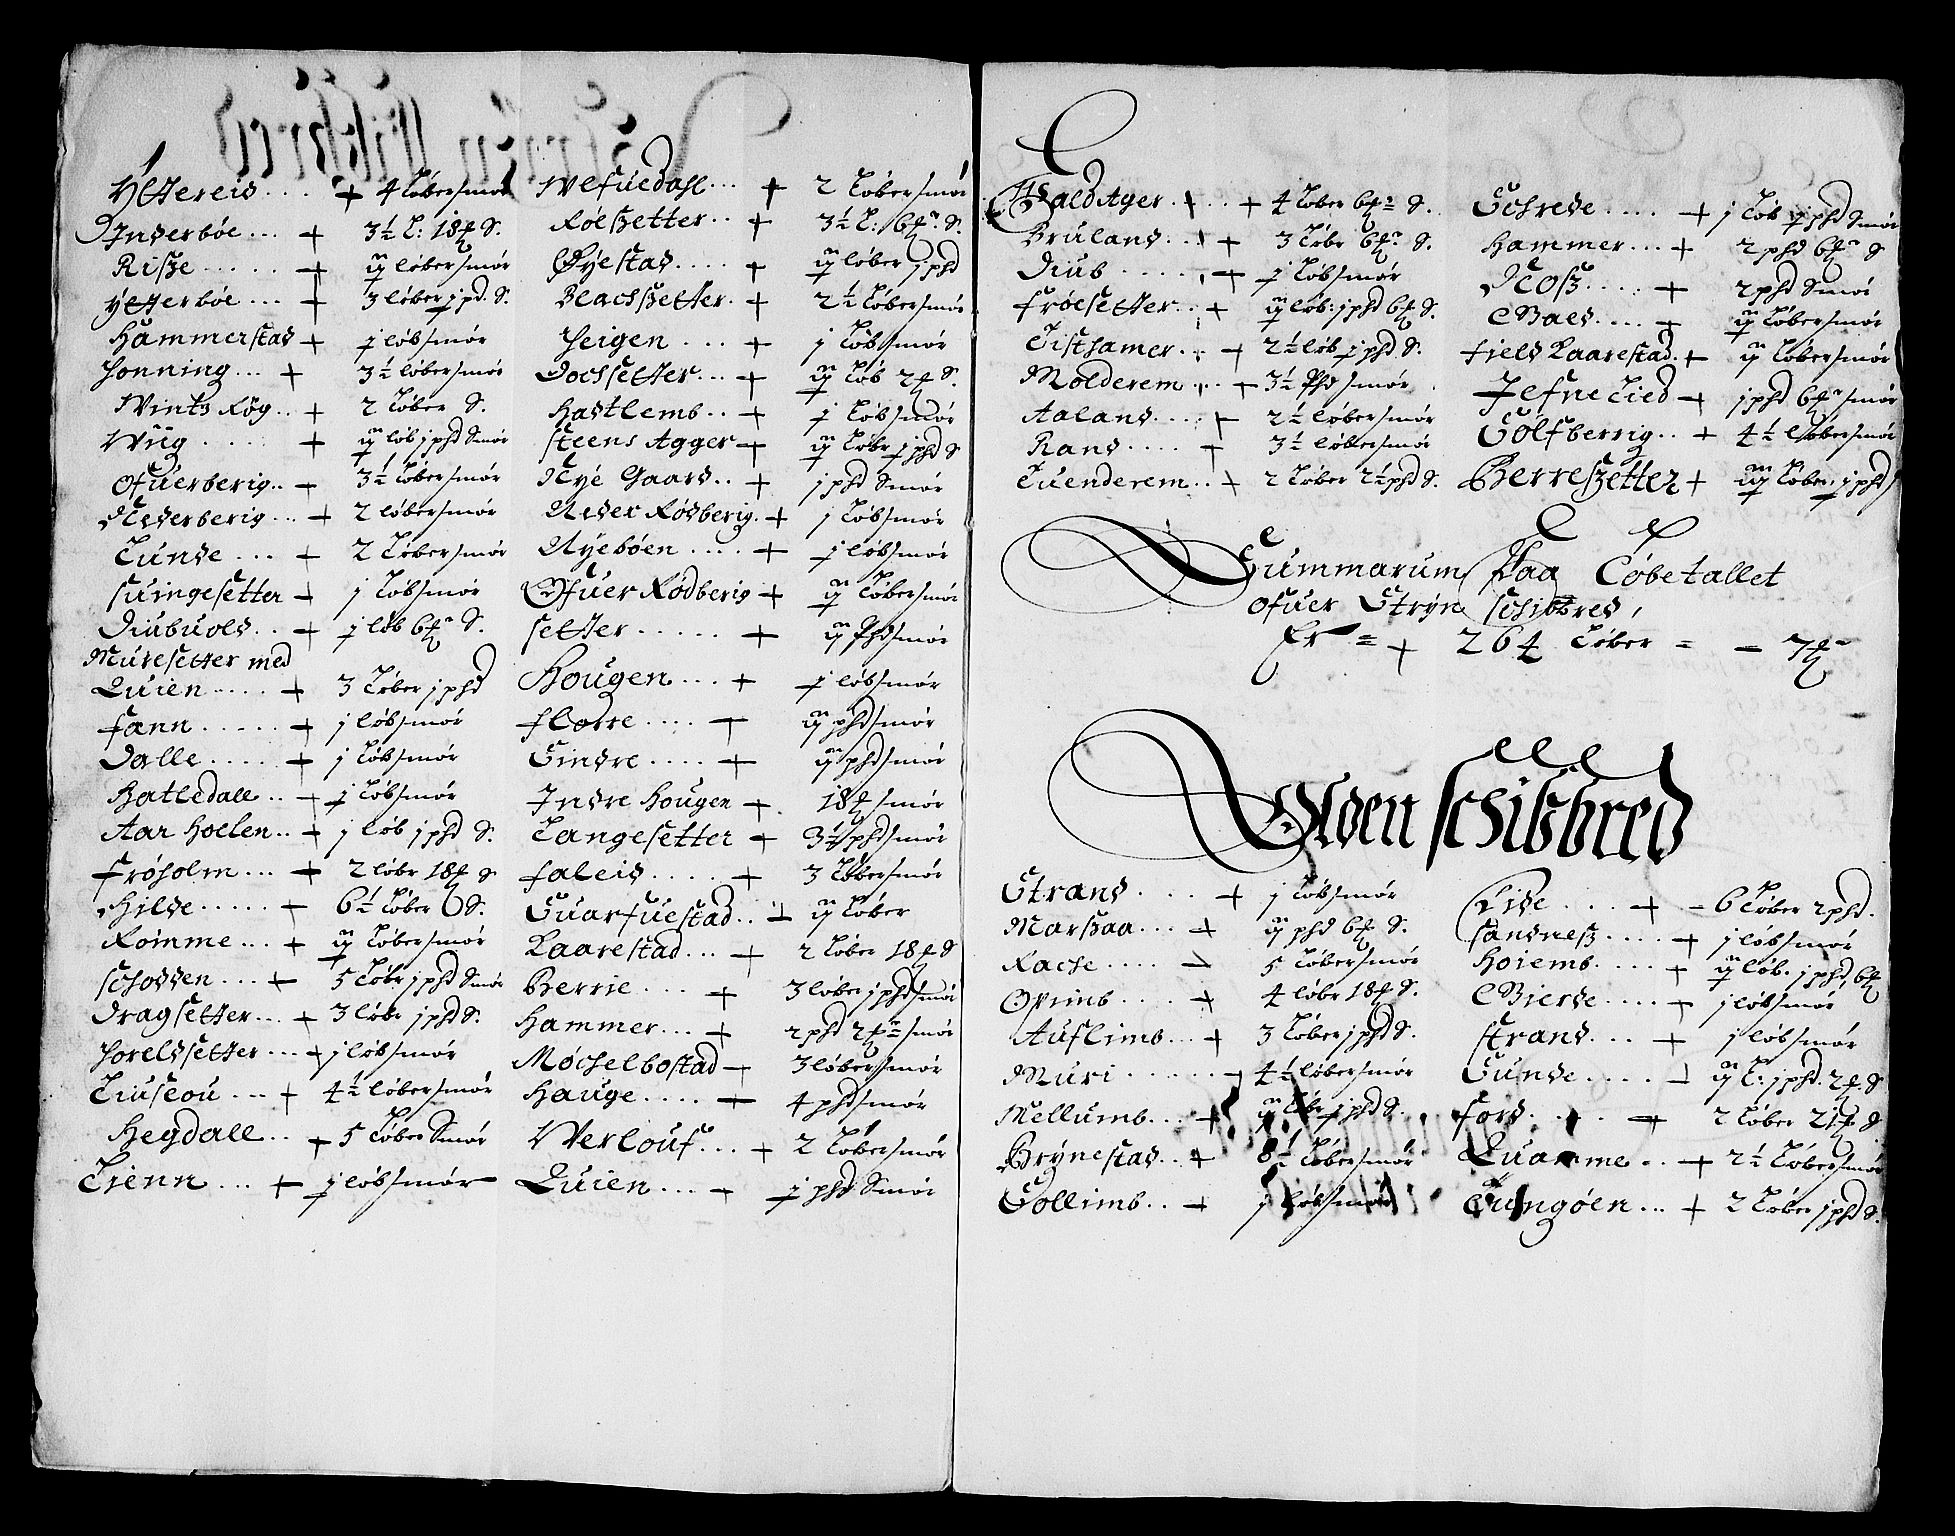 Yttereid .... + 4 Løber smør
Inderbøe ... + 3½ L: 18 S.
Risze ..... + ij løber smør
Ytterbøe ... + 3 løber j pd. S.
Hammerstad + j løb smør
Honning ... + 3½ løber smør
2 Løber S.
Wiig ..... + ij løb j phd Smør
Ofuerberig .. + 3½ Løber smør
Nederberig ... + 2 løber smør
Lunde ... + 2 Løber smør
suingesetter + j Løb smør
j løb 6 S.
Muresetter med
Quien .... + 3 Løber j phd
fann ..... + j løb smør
Dalle ..... + j Løb smør
Batledall .. + j Løb smør
Aar Hoelen .. + j løb j phd S.
frøholm ... + 2 løbr 18 S
Hilde ..... + 6½ Løber S.
Roimme ... + ij Løber smør
schodden ... + 5 Løbr j phd Smør
Dragsetter ... + 3 løbr j phd S.
Horeldsetter ... + j løb smør
4½ løber smør
Hegdall .. + 5 Løber Smør
Tienn ... + j løb smør
Wefuedahl ... + 2 Løber smør
Røeszetter .. + 3½ L: 6 S.
Øyestad .... + ij løber j phd
Blachszetter . + 2½ Løber smør
Heigen ... + j Løb smør
Dochsetter ... + ij Løb 2 S.
Hastlemb .. + j Løb smør
steens Agger + ij Løbr j phd S
Nye Gaard .. + j phd Smør
Neder Rødberig . + j Løb smør
Nyebøen .... + j løb smør
Ofuer Rødberig + ij Løber smør
setter ..... + ij Phd smør
Hougen ... + j løb smør
florre .... + ij phd smør
Gindre .... + ij phd smør
Indre Hougen + 18 smør
Langesetter + 3½ phd smør
faleid .... + 3 Løber smør
Guarfuestad .. + ij Løber
Kaarestad ... + 2 Løber 18 S
Berrie .... + 3 løber j phd smør
Hammer ... + 2 phd 2 smør
Møchelbostad + 3 løber smør
Hauge .... + 4 phd smør
Werlouf ... + 2 Løber smør
Quien ... + j phd Smør
4 Løber 6 S.
Bruland ... + 3 Løbr 6 S.
Diub .... + j Løb smør
frøesetter ... + ij løb: j phd 6 S.
Tisthamer ... + 2½ løb j phd S.
Molderem ... + 3½ Phd smør
Aaland .... + 2½ løber smør
Rand .... + 3½ løber smør
Tuenderem .. + 2 Løber 2½ phd S.
Schrede .... + j Løb j phd Smør
Hammer ... + 2 phd 6 S
Nosz .... + 2 phd Smør
Bald .... + ij Løber smør
field Kaarestad .. + ij Løber smør
Jefne Lied + j phd 6 smør
Sølfberrig .. + 4½ Løber smør
Berreszetter + iij Løber j phd
Summarum Paa Løbetallet
ofuer Stryn schibbred,
Er = + 264 Løber = – 7
Olden schibbred
Strand .... + j Løb smør
Marszaa ... + ij phd 6 S.
Rache .... + 5 Løber smør
Opimb .... + 4 løbr 18 S.
Auflimb ... + 3 Løber j phd S.
Muri ..... + 4½ løber smør
Mellumb ... + ij Løbr j phd S.
Brynestad .. + 8½ Løber smør
Gollimb .. + j Løb smør
Eide .... + – 6 Løber 2 phd.
sandnesz .... + j løb smør
Hoiemb .... + ij løb. j phd 6
Bierde .... + j løb smør
strand ... + j løb smør
Gunde .... + ij L: j phd. 2 S
ford .... + 2 Løber 21 S.
Quamme .. + 2½ Løber smør
Tungøen ... + 2 Løber j phd S.